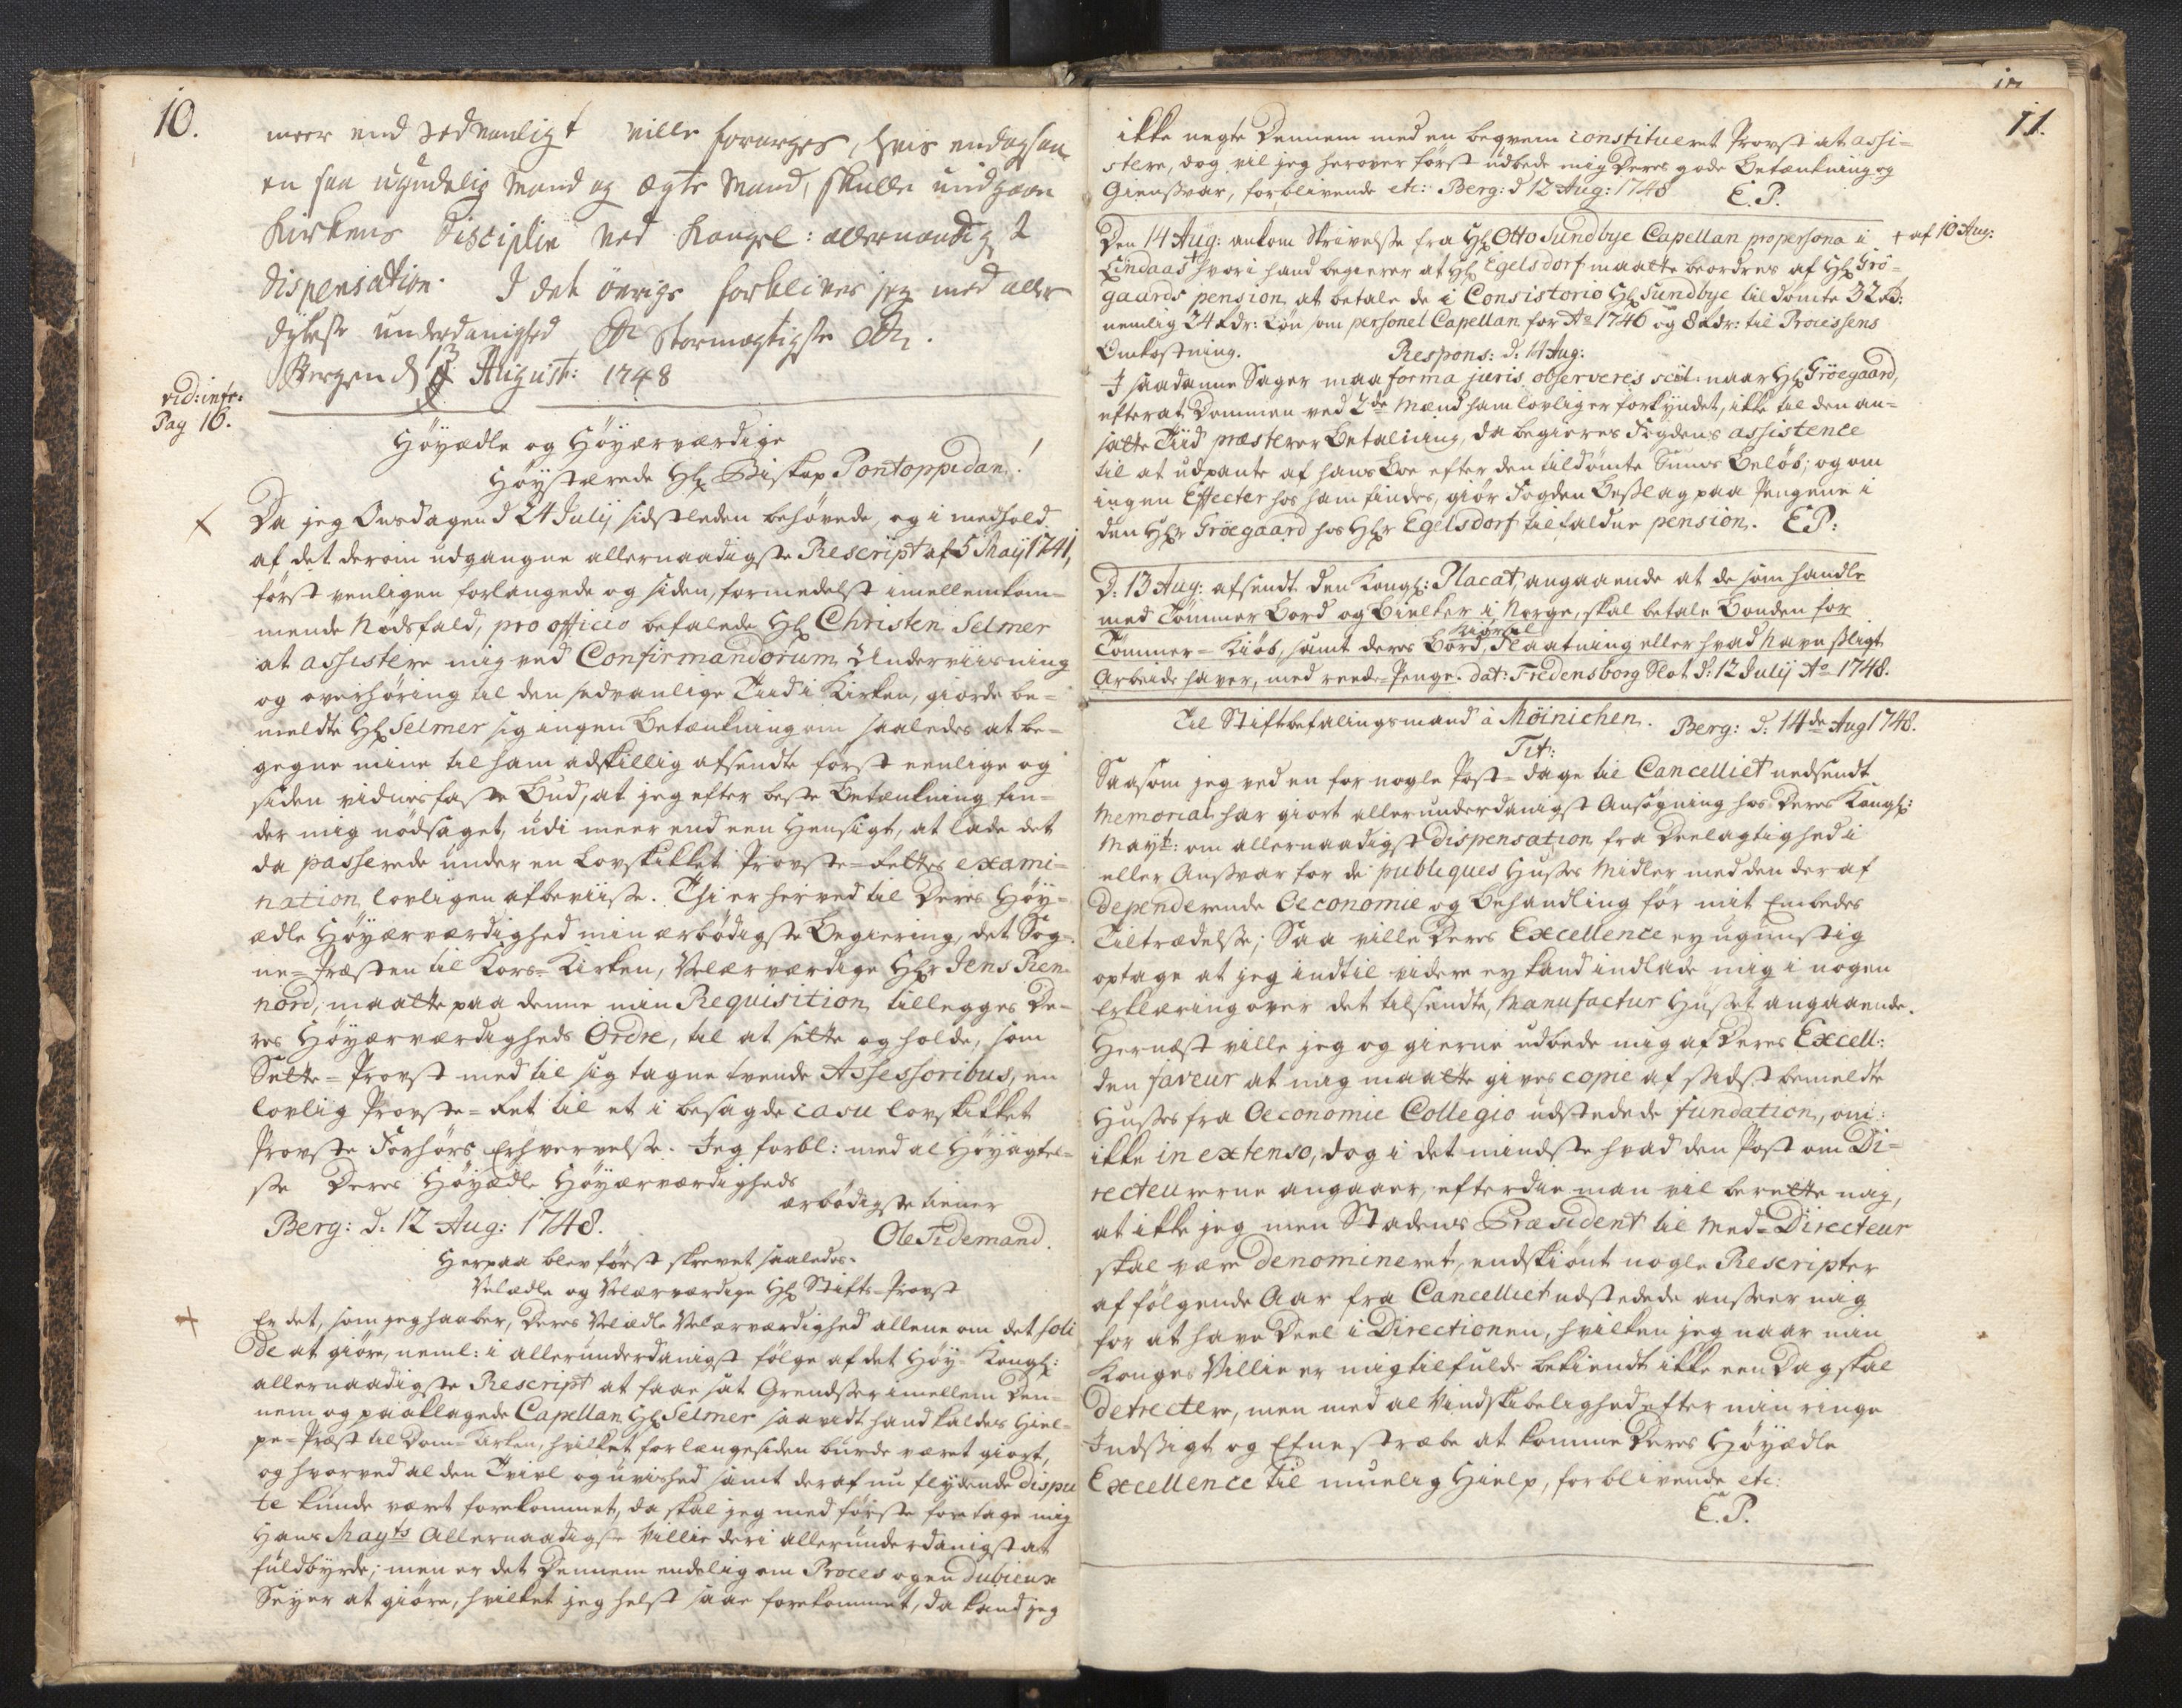 10.
meer end sedvanligt ville forarges, hvis endogsaa
en saa ugudelig Mand og ægte Mand, skulle undgaae
Kirkens Disciplin ved Kongel: allernaadigst
dispensation. I det øvrige forbliver jeg med aller
dybeste underdanighed Dr Stormægtigste etc.
Bergen d 13 August: 1748
vid: infr:
Pag 16.
Høyædle og Høyærværdige
Høystærede Hr Biskop Pontoppidan!
Da jeg Onsdagen d 24 Julij sidstleden behøvede, og i medhold
af det derom udgangne allernaadigste Rescript af 5 Maij 1741,
først venligen forlangede og siden, formedelst imellemkom-
mende Nødsfald, pro officio befalede Hr Christen Selmer
at assistere mig ved Confirmandorum Underviisning
og overhøring til den sedvanlige Tiid i Kirken, giorde be-
meldte Hr Selmer sig ingen Betænkning om saaledes at be-
gegne mine til ham adskillig afsendte først venlige og
siden vidnesfaste Bud, at jeg efter beste Betænkning fin-
der mig nødsaget, udi meer end een Hensigt, at lade det
da passerede under en Lovskikket Provste-Rettes exami-
nation lovligen afbeviise. Thi er herved til Deres Høy-
ædle Høyærværdighed min ærbødigste Begiering, det Sog-
ne-Præsten til Kors-Kirken, Velærværdige Hr Jens Ren-
nord, maatte paa denne min Requisition tillegges De-
res Høyærværdigheds Ordre, til at sette og holde, som
Sette-Provst med til sig tagne tvende Assessoribus, en
lovlig Provste-Ret til et i besagde casu lovskikket
Provste Forhørs Erhvervelse. Jeg forbl: med al Høyagtel-
se Deres Høyædle Høyærværdigheds
ærbødigste tiener
Berg: d. 12 Aug: 1748.
Ole Tidemand.
Herpaa blev først skrevet saaledes.
Velædle og Velærværdige Hr Stifts-Provst
Er det, som jeg haaber, Deres Velædle Velærværdighed allene om det soli
de at giøre, neml: i allerunderdanigst følge af det Høy-Kongl:
allernaadigste Rescript at faae sat Grendser imellem Den-
nem og paaklagede Capellan Hr Selmer saavidt hand kaldes Hiel-
pe-Præst til Dom-Kirken, hvilket for længesiden burde været giort,
og hvorved al den Tvivl og uvished samt deraf nu flydende dispu
te kunde været forekommet, da skal jeg med første foretage mig
Hans Mayts Allernaadigste Villie deri allerunderdanigst at
fuldbyrde; men er det Dennem endelig om Proces og en dubieux
Seyer at giøre, hvilket jeg helst saae forekommet, da kand jeg
11.
ikke negte Dennem med en beqvem constitueret Provst at assi-
stere, dog vil jeg herover først udbede mig Deres gode Betænkning og
Giensvar, forblivende etc: Berg: d 12 Aug: 1748 E.P.
Den 14 Aug: ankom Skrivelse fra Hr Otto Sundbye Capellan pro persona i
+ af 10 Aug:
Lindaas + hvori hand begierer at Hr Egelsdorf maatte beordres af Hr Grö-
gaards pension at betale de i Consistorio Hr Sundbye tildømte 32 Rd:
nemlig 24 Rdr: Løn som personel Capellan for Ao 1746 og 8 Rdr: til Processens
Omkostning. Respons: d: 14 Aug:
I saadanne Sager maa forma juris observeres scil: naar Hr Gröegaard,
efterat Dommen ved 2de Mænd ham lovlig er forkyndet, ikke til den an-
satte Tiid præsterer Betalning, da begieres Fogdens assistence
til at udpante af hans Boe efter den tildømte Sums Beløb; og om
ingen Effecter hos ham findes, giør Fogden Beslag paa Pengene i
den Hr Gröegaard hos Hr Egelsdorf tilfaldne pension. E.P:
D: 13 Aug: afsendt den Kongl: Placat, angaaende at de som handle
med Tømmer Bord og Bielker i Norge, skal betale Bonden for
Tømmer-Kiøb, samt deres Bord, Kiørsel Flaatning eller hvad Navnsligt
Arbeide haver, med reede-Penge. dat: Fredensborg Slot d: 12 Julij Ao 1748.
Til Stiftbefalingsmand a Møinichen. Berg: d. 14de Aug 1748.
Tit:
Saasom jeg ved en for nogle Post-dage til Cancelliet nedsendt
Memorial har giort allerunderdanigst Ansøgning hos Deres Kongl:
Mayt: om allernaadigst dispensation fra Deelagtighed i
eller Ansvar for de publiques Huses Midler med den deraf
dependerende Oeconomie og Behandling før mit Embedes
Tiltrædelse; Saa ville Deres Excellence ey ugunstig
optage at jeg indtil videre ey kand indlade mig i nogen
Erklæring over det tilsendte, Manufactur Huset angaaende.
Hernæst ville jeg og gierne udbede mig af Deres Excell:
den faveur at mig maatte gives copie af sidst bemeldte
Huses fra Oeconomie Collegio udstedede fundation, om
ikke in extenso, dog i det mindste hvad den Post om Di-
recteurerne angaaer, efterdie man vil berette mig,
at ikke jeg men Stadens Præsident til Med-Directeur
skal være denomineret, endskiønt nogle Rescripter
af følgende Aar fra Cancelliet udstedede anseer mig
for at have Deel i Directionen, hvilken jeg naar min
Konges Villie er mig tilfulde bekiendt ikke een Dag skal
detrectere, men med al Vindskibelighed efter min ringe
Indsigt og Efne stræbe at komme Deres Høyædle
Excellence til muelig Hielp, forblivende etc:
E.P.